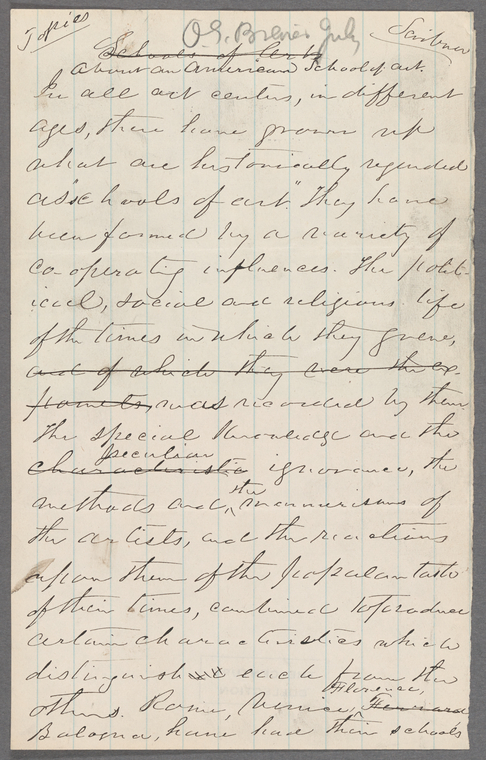 Topics
O.S. July
Scribner
Schools of Art
About an American School of art.
In all art centers, in different
ages, there have grown up
what are historically regarded
as "schools of art." They have
been formed by a variety of
co-operating influences. The polit-
ical, social and religious life
of the times in which they grew,
and of which they were the ex-
ponents, was recorded by them.
The special knowledge and the
peculiar
characteristic ignorance, the
the
methods and mannerisms of
the artists, and the reactions
upon them of the popular taste
of their times, combined to produce
certain characteristics which
distinguish each from the
Florence,
others. Rome, Venice,
Bologna, have had their schools